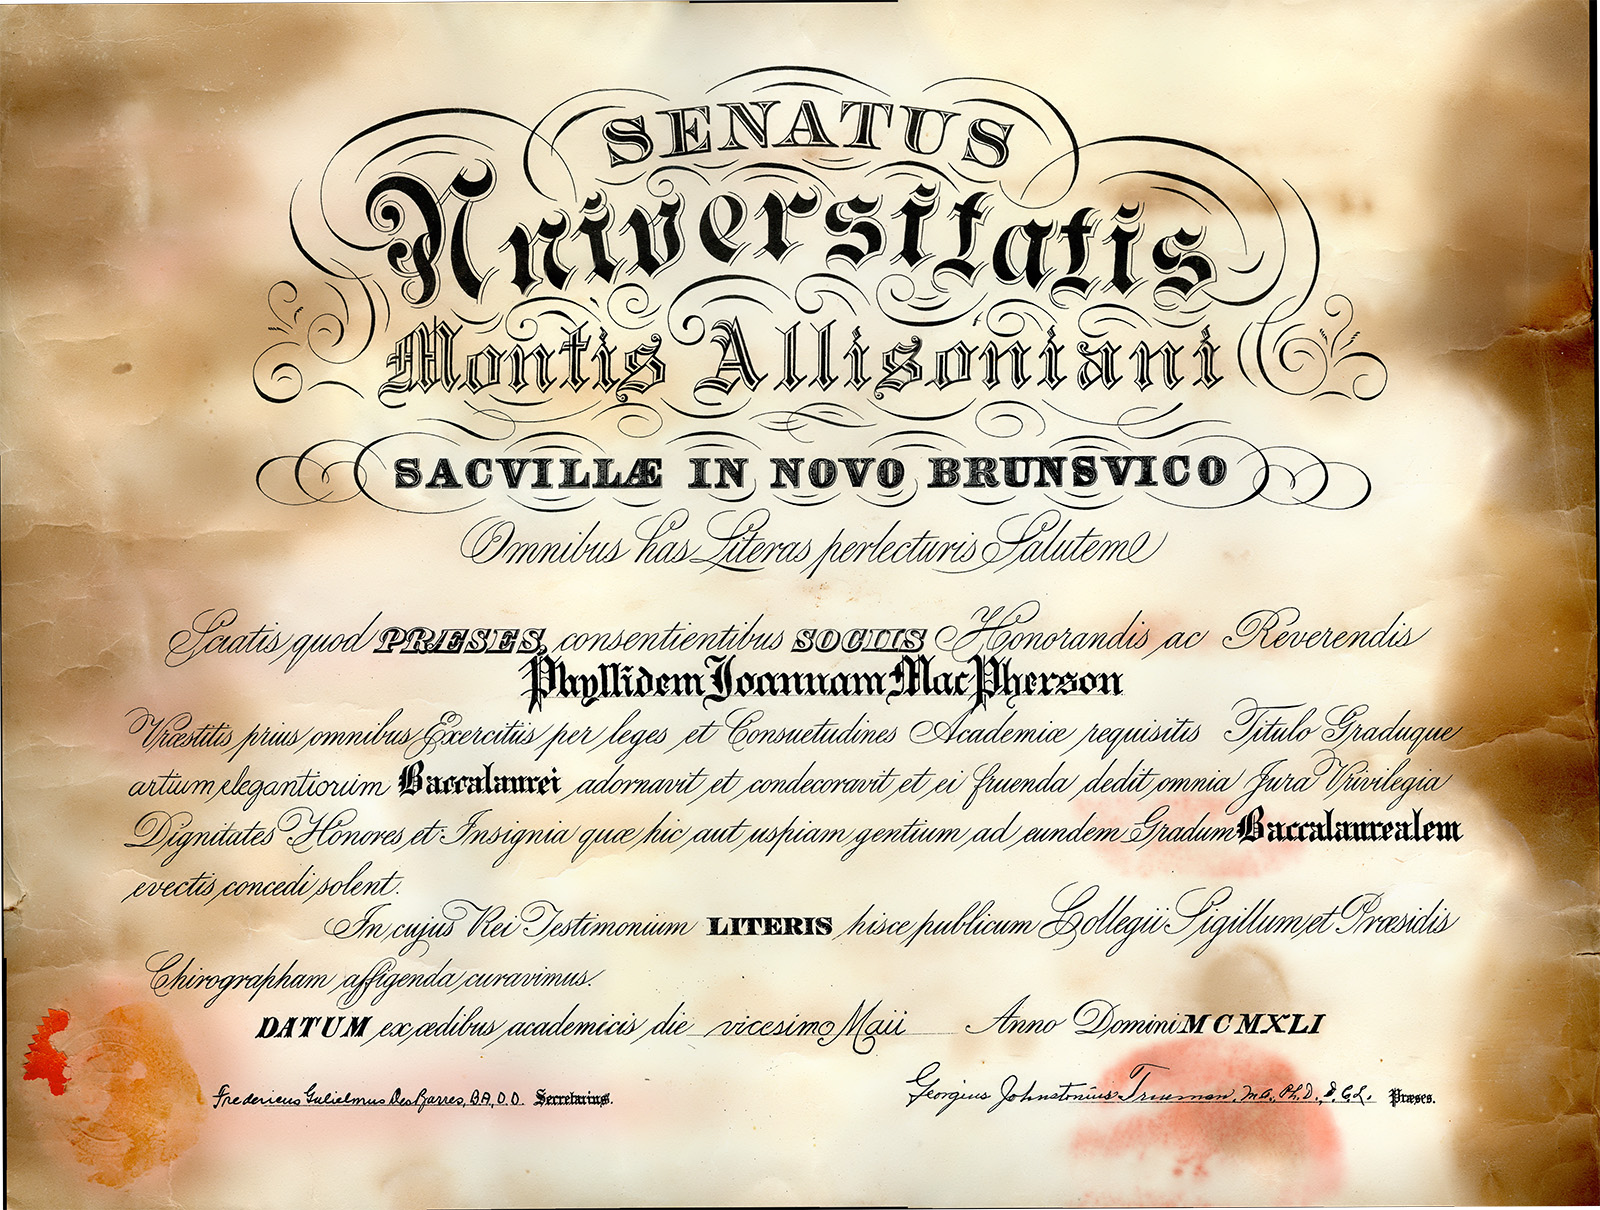 SENATUS
Universitatis
Montis Allisoniani
SACVILLÆ IN NOVO BRUNSVICO
Omnibus has Literas perlecturis Salutem
Sciatis quod PRÆSES, consentientibus SOCIIS Honorandis ac Reverendis
Phyllidem Joannam MacPherson
Præstitis prius omnibus Exercitiis per leges et Consuetudines Academiæ requisitis Titulo Graduque
artium elegantiorum Baccalaurei adornavit et condecoravit et ei fruenda dedit omnia Jura Privilegia
Dignitates Honores et Insignia quæ hic aut uspiam gentium ad eundem Gradum Baccalaurealem
evectis concedi solent.
In cujus Rei Testimonium LITERIS hisce publicum Collegii Sigillum et Præsidis
Chirographam affigenda curavimus.
DATUM ex ædibus academicis die vicesimo Maii Anno Domini MCMXLI
Fredericus Gulielmus DesBarres, BA, D.D. Secretarius.
Georgius Johnstonius Trueman, M.A., Ph.D., D.C.L. Præses.